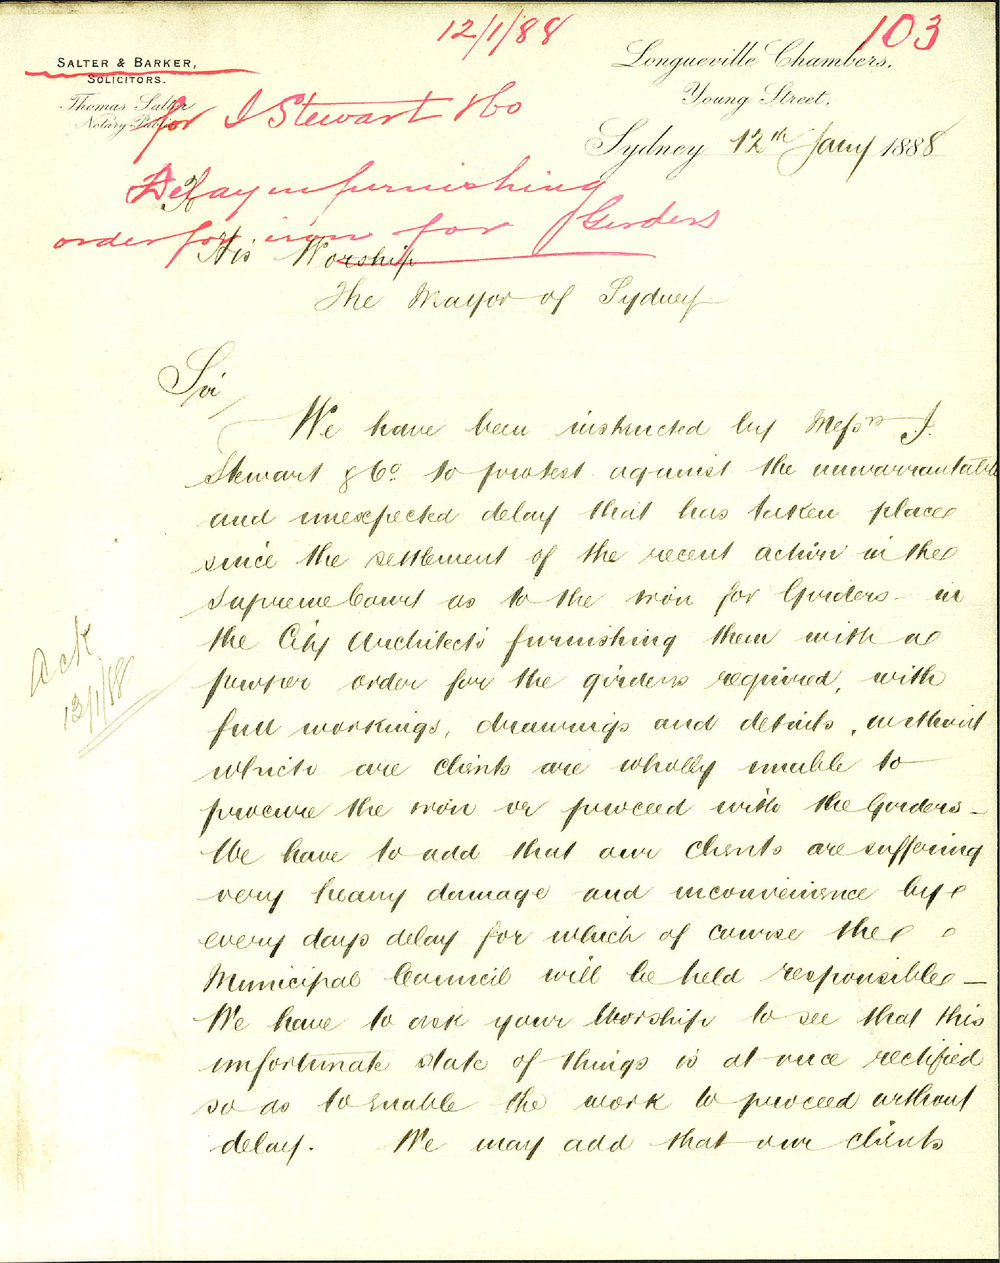 12/1/88
103
SALTER & BARKER,
SOLICITORS.
Thomas Salter
Notary Public
Longueville Chambers,
Young Street,
Sydney 12th Jany 1888
for J Stewart & Co
Delay in furnishing
order for iron for Girders
To
His Worship
The Mayor of Sydney
Sir,
We have been instructed by Messrs J.
Stewart & Co to protest against the unwarrantable
and unexpected delay that has taken place
since the settlement of the recent action in the
Supreme Court as to the iron for Girders - in
the City Architects furnishing them with a
proper order for the girders required, with
full workings, drawings and details, without
which are clients are wholly unable to
procure the iron or proceed with the Girders -
We have to add that our clients are suffering
very heavy damage and inconvenience by
every days delay for which of course the
Municipal Council will be held responsible -
We have to ask your Worship to see that this
unfortunate state of things is at once rectified
so as to enable the work to proceed without
delay. We may add that our clients
Ack
13/1/88